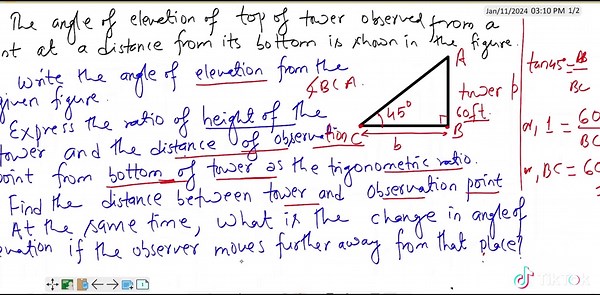 Jan/11/2024 03:10 PM 1/2
The angle of elevation of top of tower observed from a
nt at a distance from its bottom is shown in the figure.
Write the angle of elevation from the
given figure.
∡BCA.
Express the ratio of height of the
tower and the distance of observation
point from bottom of tower as the trigonometric ratio.
Find the distance between tower and observation point
At the same time, what is the change in angle of
evation if the observer moves further away from that place?
A
tower p
45°
60ft.
C
B
b
tan45° = AB
BC
or, 1 = 60
BC
or, BC = 60